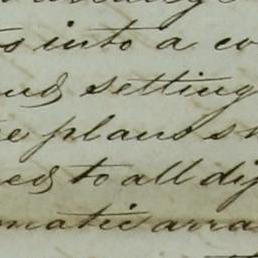 into a co
setting
plans sh
ed to all dif
matic arra